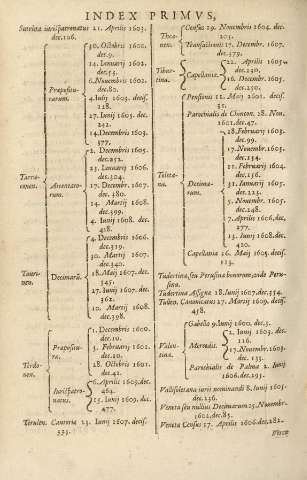 INDEX PRIMVS,
Surcita iurispatronatus 21. Aprilis 1603.
dec. 106.
Tarraconen.
Præpositurarum.
30. Octobris 1602.
dec. 9.
14. Ianuarij 1602.
dec. 53.
6. Nouembris 1602.
dec. 80.
4. Iulij 1603. decis.
128.
27. Iunij 1605. dec.
242.
14. Decembri 1603.
577.
2. Decembris 1605.
dec. 252.
23. Ianuarij 1606.
dec. 304.
17. Decembr. 1607.
dec. 380.
14. Martij 1608.
dec. 399.
4. Iunij 1608. dec.
418.
Taurinen.
Decimarū.
4. Decembris 1606.
dec. 319.
30. Martij 1607.
dec. 340.
18. Maij 1607. dec.
345.
27. Iunij 1607. dec.
362.
10. Martij 1608.
dec. 398.
Terdonen.
Præpositura.
1. Decembris 1600.
dec. 10.
5. Februarij 1602.
dec. 20.
28. Octobris 1601.
dec. 42.
Iurispatronatus.
6. Aprilis 1609. dec.
464.
15. Iunij 1609. dec.
477.
Terulen. Cantoria 23. Iunij 1607. decis.
355.
Census 29. Nouembris 1604. dec.
205.
Transactionis 17. Decembr. 1607.
dec. 379.
Tiburtina.
Capellania.
22. Aprilis 1605.
dec. 230.
16. Decembris 1605.
dec. 250.
Toletana.
Pensionis 11. Maij 1601. decis.
35.
Parochialis de Chincon. 28. Nou.
1601. dec. 47.
Decimarum.
28. Februarij 1603.
dec. 99.
17. Nouembr. 1603.
dec. 134.
11. Februarij 1604.
dec. 156.
31. Ianuarij 1605.
dec. 223.
5. Nouembr. 1605.
dec. 248.
17. Aprilis 1606, dec,
277.
13. Iunij 1608. dec.
420.
Capellania 16. Maij 1605. decis.
113.
Tudertina seu Perusina bonorum, vide Perusina.
Tudertina Assignæ 18. Iunij 1607. dec. 354.
Tuleo. Canonicatus 27. Martij 1609. decis.
458.
Valentina.
Gabella 9. Iunij 1600. dec. 5.
Mercedis.
2. Iunij 1603. dec.
116.
17. Nouembr. 1603.
dec. 133.
Parochialis de Palma 2. Iunij
1606. dec. 293.
Vallisoletana iuris nominandi 8. Iunij 1603.
dec. 136.
Veneta seu nullius Decimarum 25. Nouembr.
1602. dec. 85.
Veneta Census 17. Aprilis 1606. dec. 282.